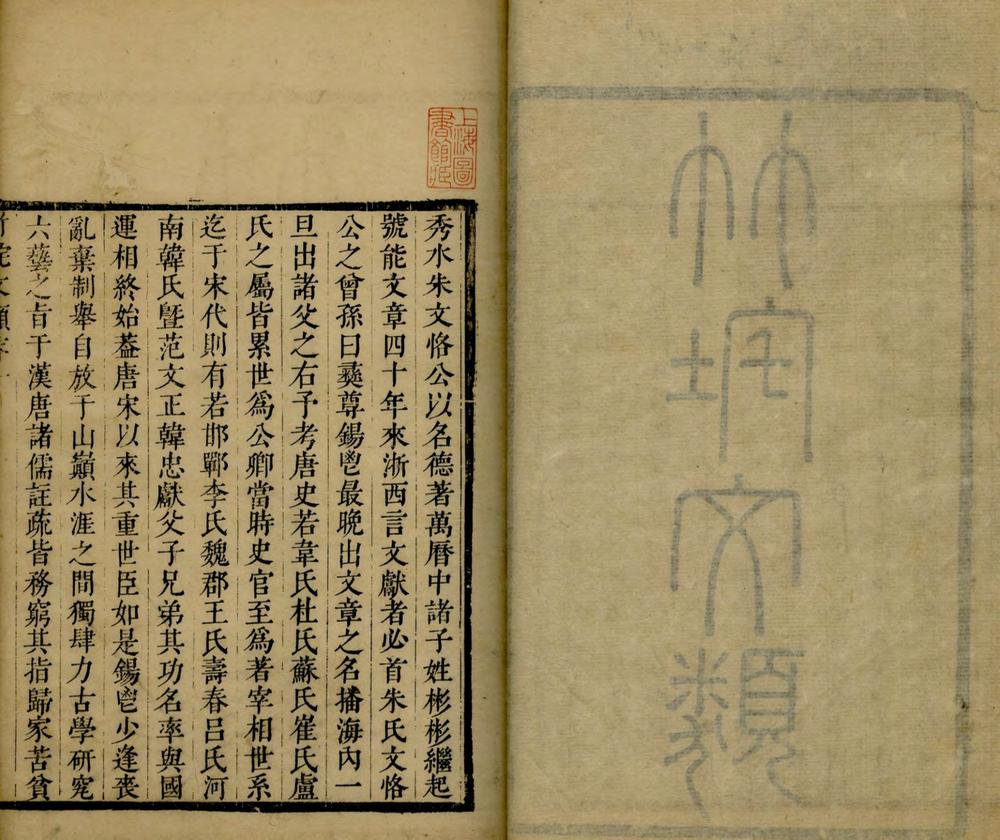 竹垞文類
上海圖
書館藏
秀水朱文恪公以名德著萬曆中諸子姓彬彬繼起
號能文章四十年來浙西言文獻者必首朱氏文恪
公之曾孫曰彝尊錫鬯最晚出文章之名播海內一
旦出諸父之右予考唐史若韋氏杜氏蘇氏崔氏盧
氏之屬皆累世爲公卿當時史官至爲著宰相世系
迄于宋代則有若邯鄲李氏魏郡王氏壽春呂氏河
南韓氏曁范文正韓忠獻父子兄弟其功名率與國
運相終始葢唐宋以來其重世臣如是錫鬯少逢喪
亂棄制舉自放于山巔水涯之間獨肆力古學研究
六藝之旨于漢唐諸儒註疏皆務窮其指歸家苦貧
竹垞文類